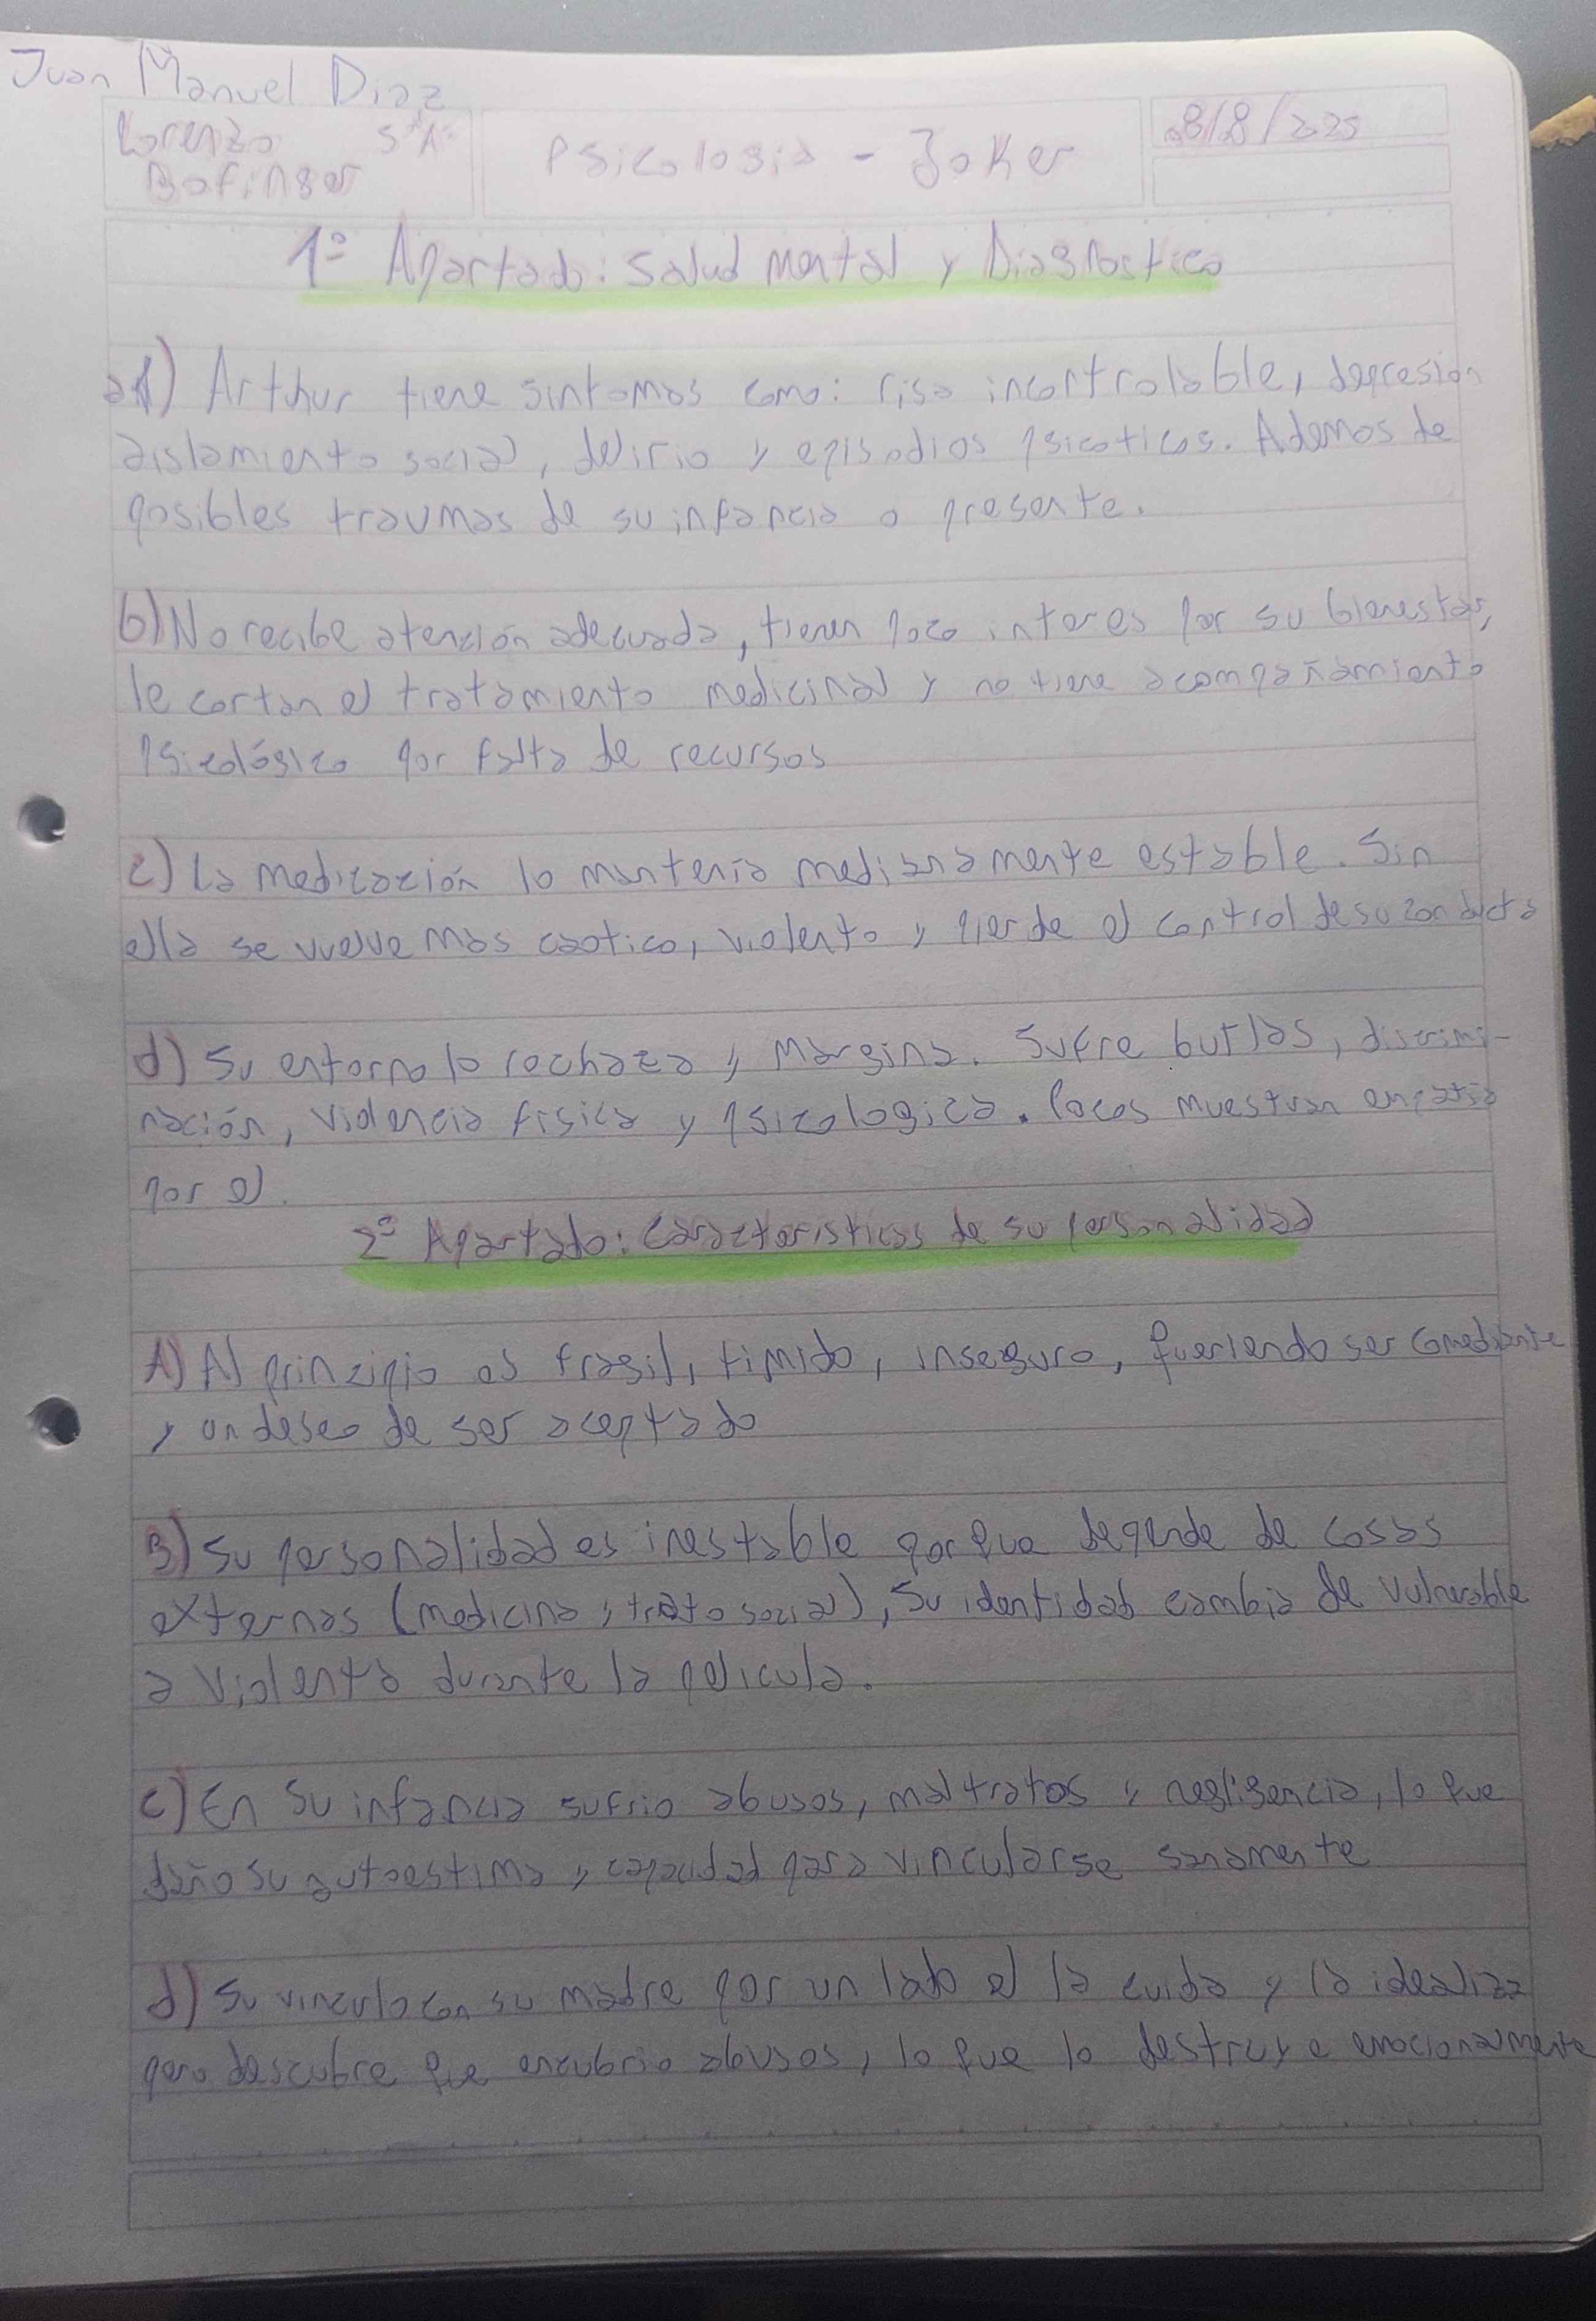 Juan Manuel Diaz
Lorenzo 5°A
Bofinger
Psicologia - Joker
8/8/2025
1° Apartado: Salud mental y Diagnostico
a) Arthur tiene sintomas como: risa incontrolable, depresión
aislamiento social, delirio y episodios psicoticos. Ademas de
posibles traumas de su infancia o presente.
b) No recibe atención adecuada, tienen poco interes por su bienestar,
le cortan el tratamiento medicinal y no tiene acompañamiento
psicológico por falta de recursos
c) La medicación lo mantenia medianamente estable. Sin
ella se vuelve mas caotico, violento y pierde el control de su conducta
d) Su entorno lo rechaza y margina. Sufre burlas, discrimi-
nación, violencia fisica y psicologica. Pocos muestran empatia
por el.
2° Apartado: Caracteristicas de su personalidad
A) Al principio es fragil, timido, inseguro, queriendo ser comediante
y un deseo de ser aceptado
B) Su personalidad es inestable porque depende de cosas
externas (medicina y trato social), Su identidad cambia de vulnerable
a violenta durante la pelicula.
c) En su infancia sufrio abusos, maltratos y negligencia, lo que
daño su autoestima y capacidad para vincularse sanamente
d) Su vinculo con su madre por un lado el la cuida y la idealiza
pero descubre que encubrio abusos, lo que lo destruye emocionalmente